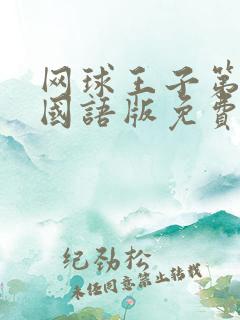 网球王子第
國語版免費
纪劲松
未经同意禁止转载